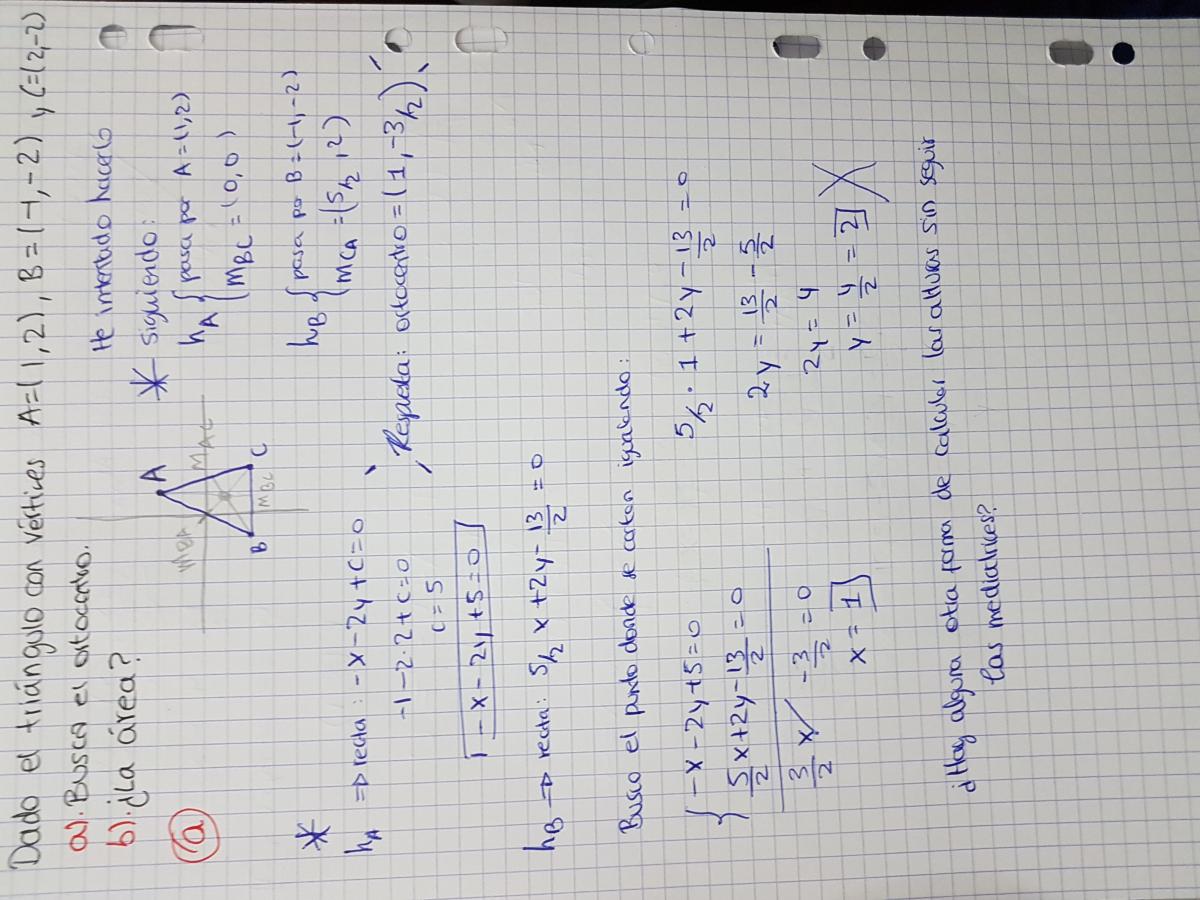 Dado el triángulo con vértices A=(1,2), B=(-1,-2) y C=(2,-2)
a). Busca el ortocentro.
b). ¿La área?
a)
A
B
C
MBA
MAC
MBC
He intentado hacerlo
* siguiendo:
hA { pasa por A=(1,2)
MBC = (0,0)
hB { pasa por B=(-1,-2)
MCA = (5/2, 2)
Respuesta: ortocentro = (1, -3/2)
*
hA => recta: -x-2y+c=0
-1-2·2+c=0
c=5
-x-2y+5=0
hB => recta: 5/2 x+2y-13/2=0
Busco el punto donde se cortan igualando:
{ -x-2y+5=0
5/2 x+2y-13/2=0
3/2 x -3/2=0
x=1
5/2·1+2y-13/2=0
2y=13/2-5/2
2y=4
y=4/2=2
¿Hay alguna otra forma de calcular las alturas sin seguir
las mediatrices?